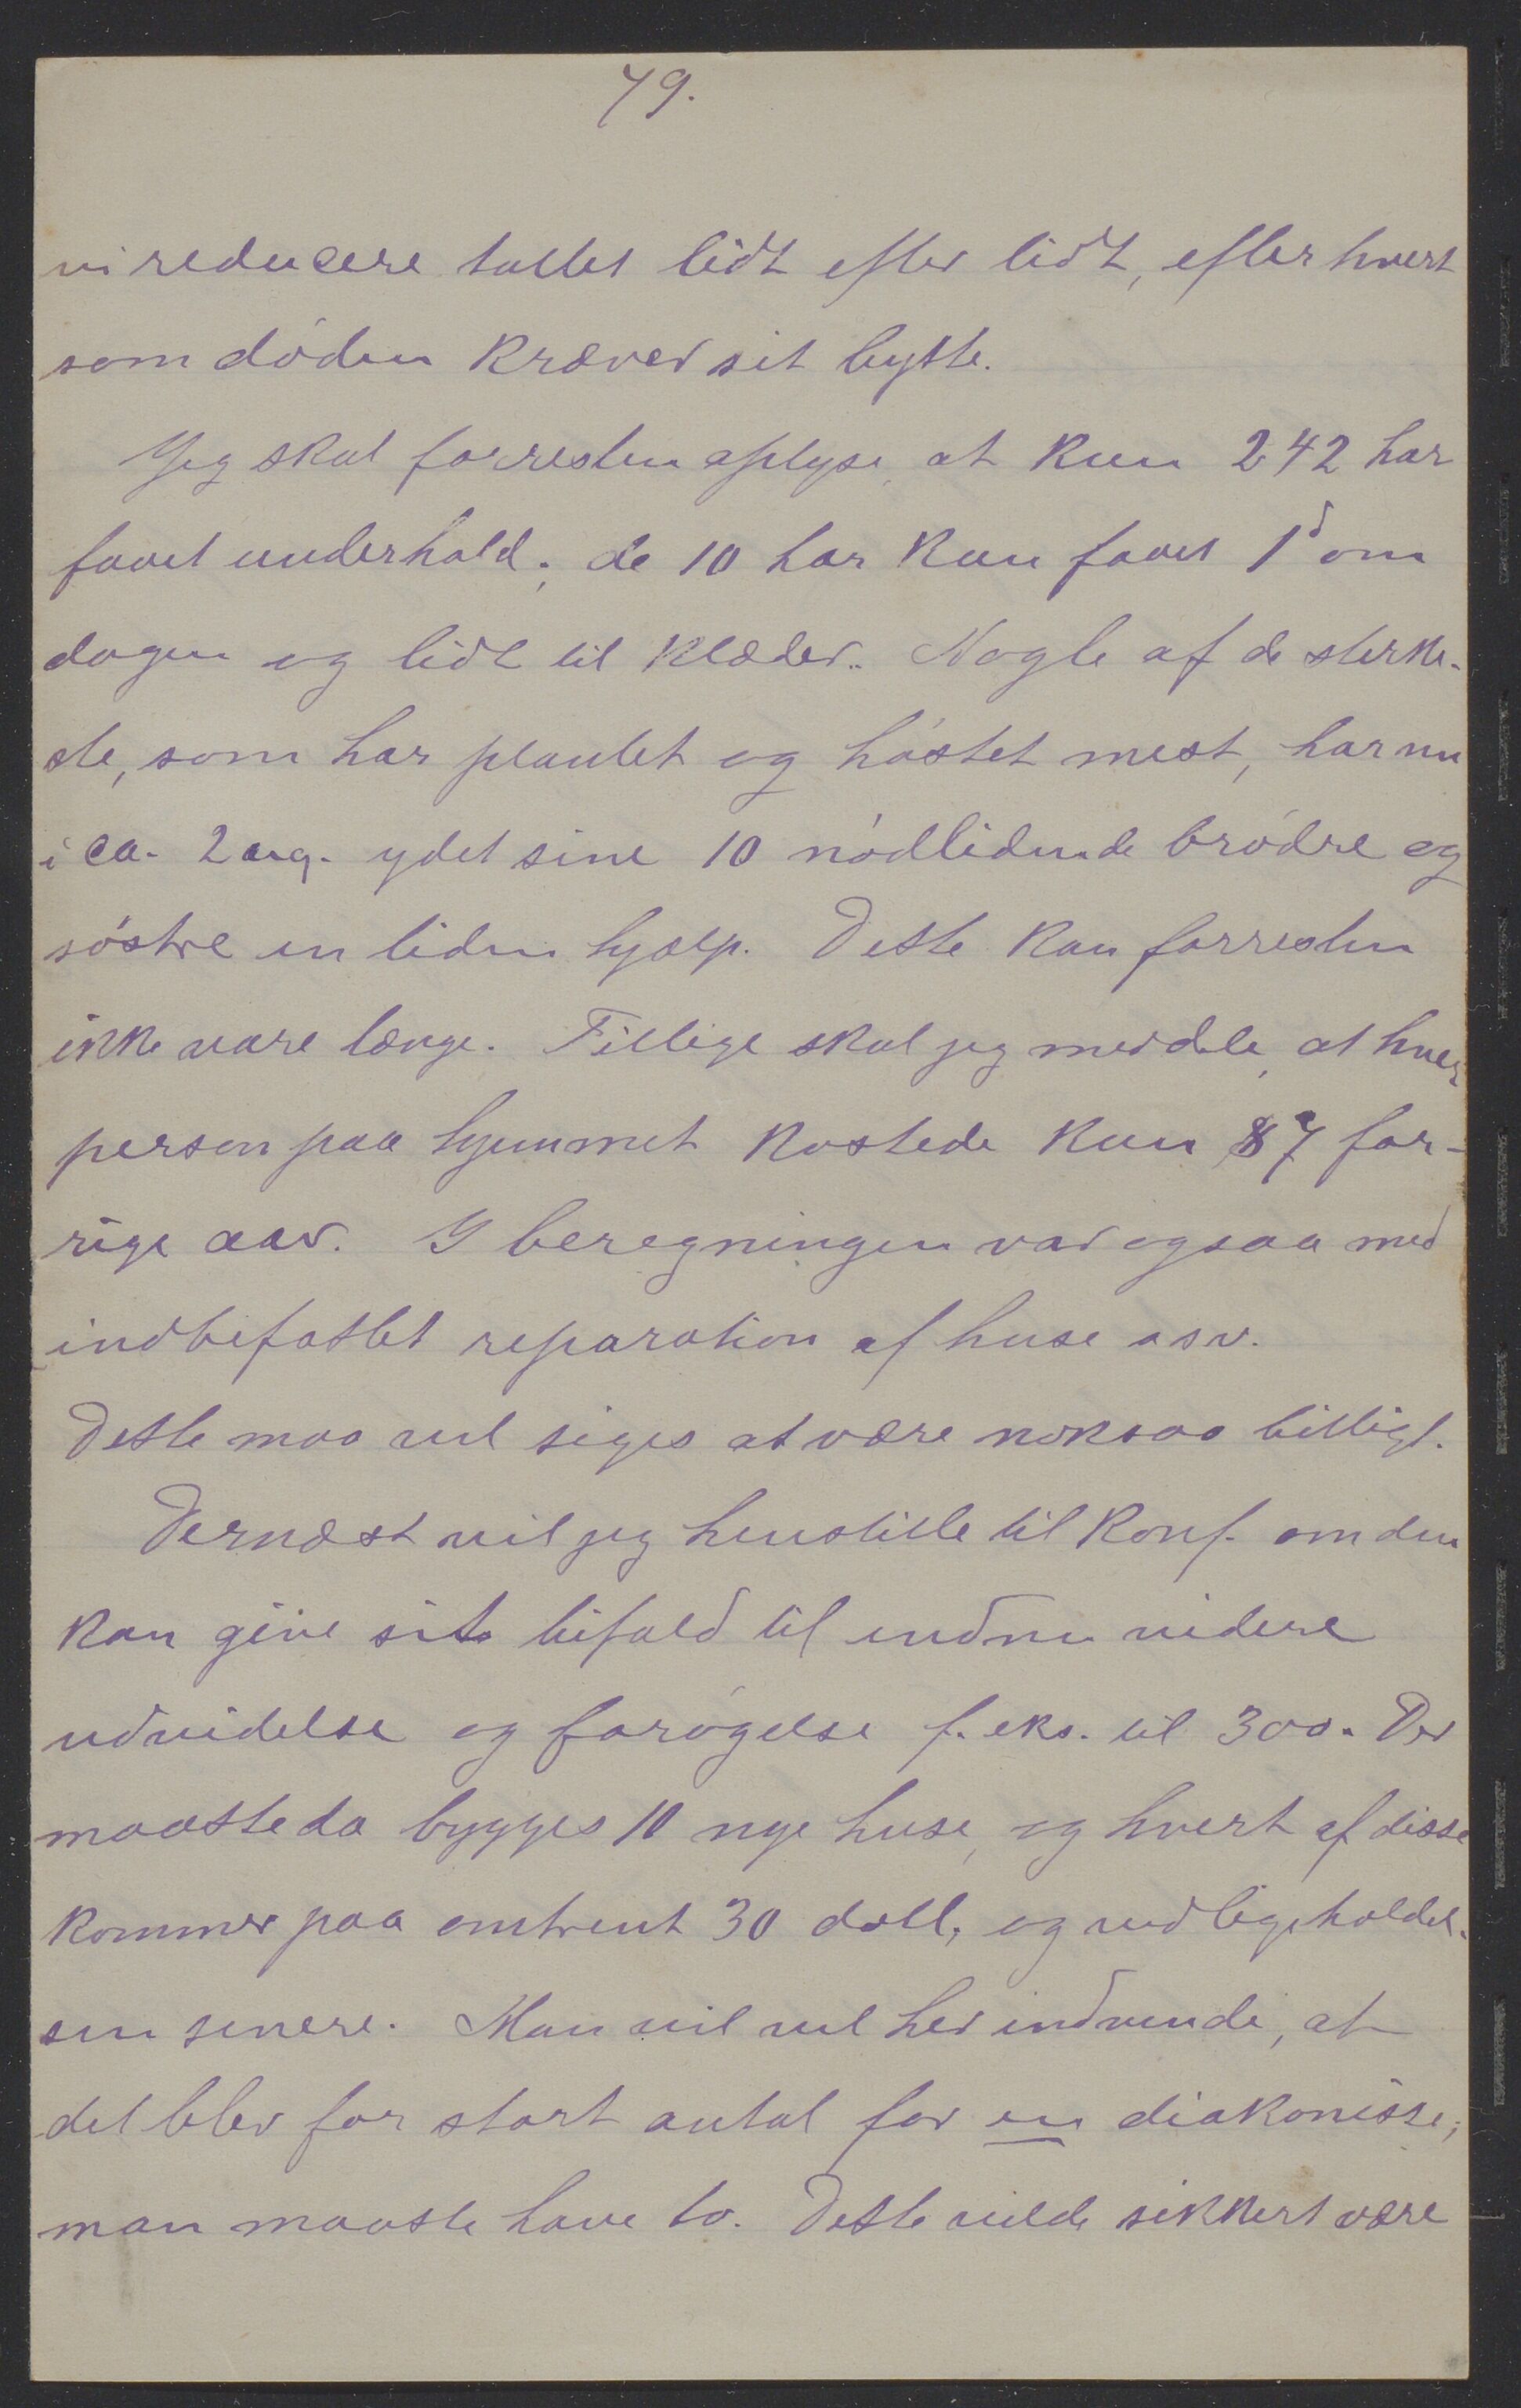 79.
vi reducere tallet lidt efter lidt, efter hvert
som döden kræver sit bytte.
Jeg skal forresten oplyse, at kun 242 har
faaet underhold; de 10 har kun faaet 1d om
dagen og lidt til klæder. Nogle af de sterke-
ste, som har plantet og höstet mest, har nu
i ca. 2 aar ydet sine 10 nödlidende brödre og
söstre en liden hjælp. Dette kan forresten
ikke vare længe. Tillige skal jeg meddele, at hver
person paa hjemmet kostede kun $7 for-
rige aar. I beregningen var ogsaa med
indbefattet reparation af huse osv.
Dette maa vel siges at være noksaa billigt.
Dernæst vil jeg henstille til konf. om den
kan give sit bifald til endnu videre
udvidelse og forögelse f. eks. til 300. Der
maatte da bygges 10 nye huse, og hvert af disse
kommer paa omtrent 30 doll, og vedligeholdel-
sen senere. Man vil vel her indvende, at
det blev for stort antal for en diakonisse;
man maatte have to. Dette vilde sikkert være